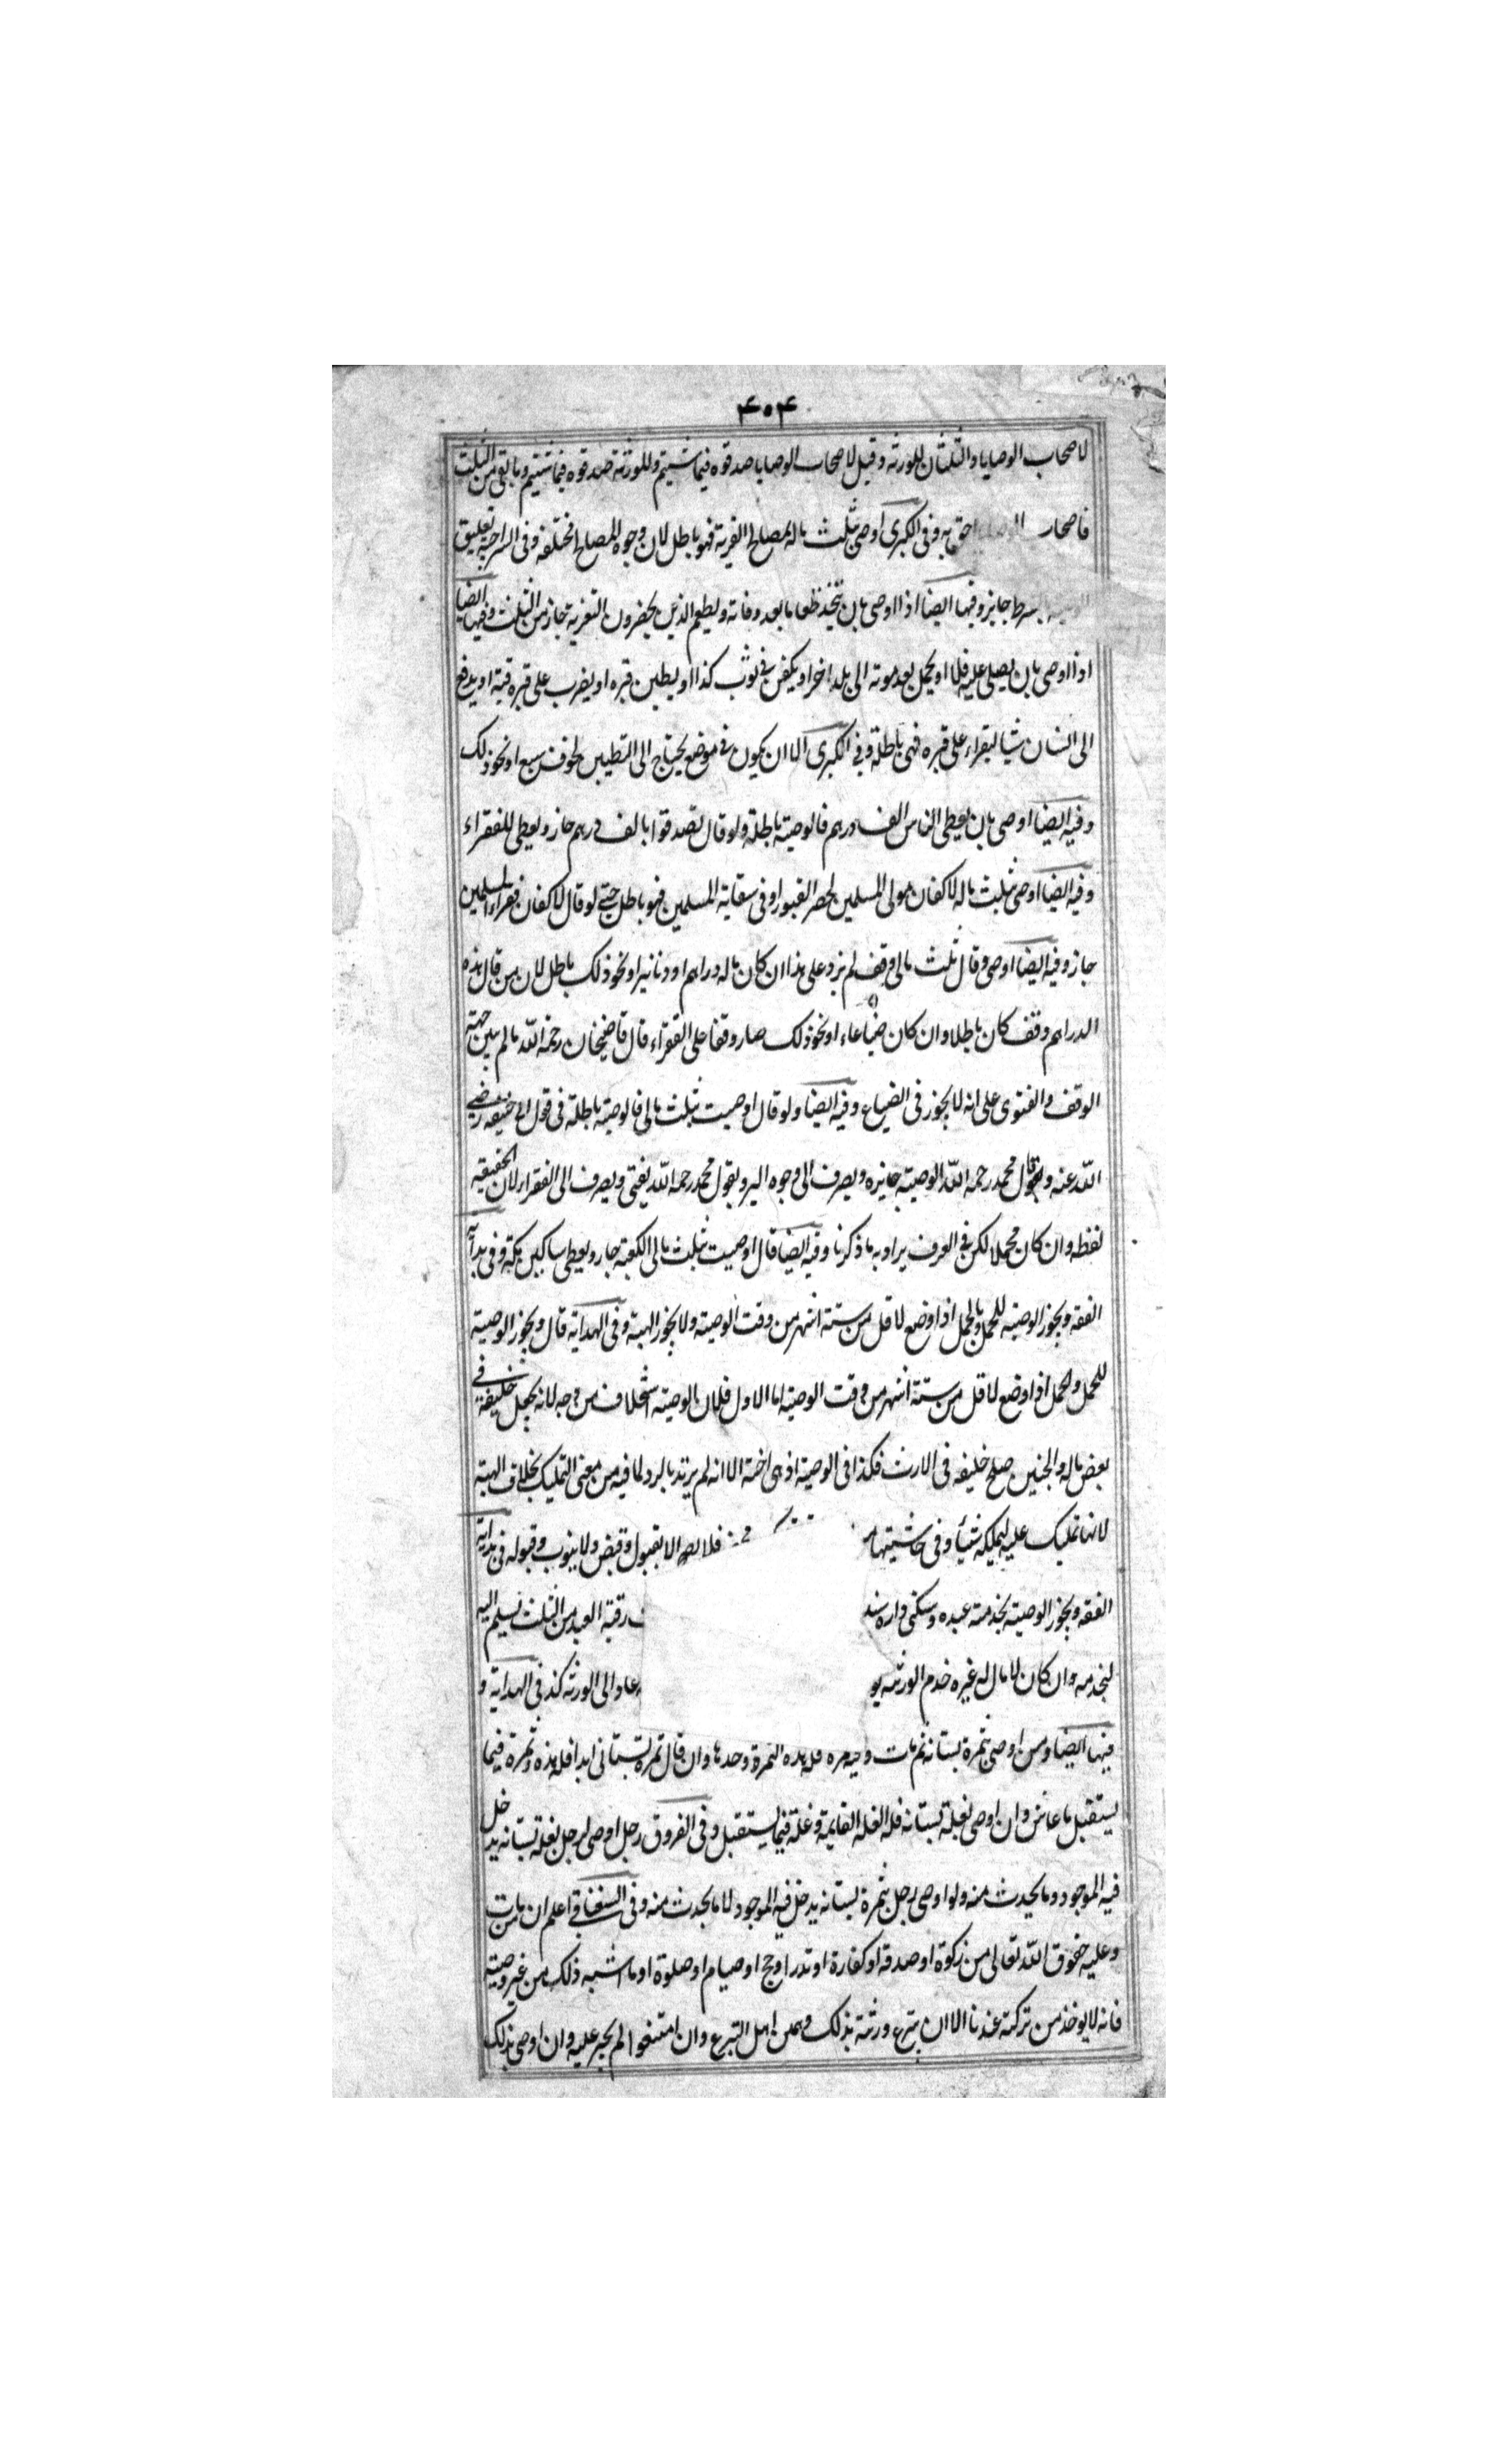 ۴۰۴
لاصحاب الوصايا والثلثان للورثة وقيل لاصحاب الوصايا صدقوه فيما شئتم وللورثة صدقوه فيما شئتم وما بقى من الثلث
فاصحاب الوصايا احق به وفى الكبرى اوصى بثلث ماله لمصالح القرية فهو باطل لان وجوه المصالح مختلفة وفى السراجية تعليق
بشرط جايز وفيها ايضا اذا اوصى بان يتخذ طعاما بعد وفاته ويطعم الذين يحضرون التعزية جاز من الثلث وفيها ايضا
اذا اوصى بان يصلى عليه فلان او يحمل بعد موته الى بلد اخر او يكفن فى ثوب كذا او يطين قبره او يضرب على قبره قبة او يدفع
الى انسان شيا ليقراء على قبره فهى باطلة وفى الكبرى الا ان يكون فى موضع يحتاج الى التطيين لخوف سبع او نحو ذلك
وفيه ايضا اوصى بان يعطى الناس الف درهم فالوصية باطلة ولو قال تصدقوا بالف درهم جاز ويعطى للفقراء
وفيه ايضا اوصى بثلث ماله لاكفان موتى المسلمين لحفر القبور او فى سقاية المسلمين فهو باطل حتى لو قال لاكفان فقراء المسلمين
جاز وفيه ايضا اوصى وقال ثلث مالى وقف لم يزد على هذا ان كان ماله دراهم او دنانير او نحو ذلك باطل لان من قال هذه
الدراهم وقف كان باطلا وان كان ضياعاء او نحو ذلك صار وقفا على الفقراء قال قاضيخان رحمه الله مالم يبين جهة
الوقف والفتوى على انه لا يجوز فى الضياع وفيه ايضا ولو قال اوصيت بثلث مالى فالوصية باطلة فى قول ابى حنيفه رضى
الله عنه وقال محمد رحمه الله الوصية جايزه ويصرف الى وجوه البر وبقول محمد رحمه الله يفتى ويصرف الى الفقراء لان الحقيقية
لفظه وان كان مجملا لكن فى العرف يراد به ما ذكرنا وفيه ايضا قال اوصيت بثلث مالى الكعبة جاز ويعطى مساكين مكة وفى بداية
الفقه ويجوز الوصية للحمل وبالحمل اذا وضع لاقل من ستة اشهر من وقت الوصية ولا يجوز الهبة وفى الهداية قال ويجوز الوصية
للحمل والحمل اذا وضع لاقل من ستة اشهر من وقت الوصية اما الاول فلان الوصية استخلاف من وجه لانه يجعل خليفة فى
بعض ماله والجنين صلح خليفه فى الارث فكذا فى الوصية اذ هى اخته الا انه لم يرتد بالرد لما فيه من معنى التمليك بخلاف الهبة
لانها تمليك عليه ليملكه شيأ وفى حاشيتها فلا يصح الا بقبول وقبض ولا ينوب وقبوله فى بداية
الفقه ويجوز الوصية بخدمة عبده وسكنى داره رقبة العبد من الثلث يسلم اليه
ليخدمه وان كان لا مال له غيره خدم الورثه يو عاد الى الورثه كذ فى الهداية و
فيها ايضا ومن اوصى بثمرة بستانه ثم مات وفيه ثمره فله هذه الثمرة وحدها وان قال ثمرة بستانى ابدا فله هذه وثمرة فيما
يستقبل ما عاش وان اوصى بغلة بستانه فله الغله القايمة وغلة فيما يستقبل وفى الفروق رجل اوصى لرجل بغلة بستانه يدخل
فيه الموجود وما يحدث منه ولو اوصى لرجل بثمرة بستانه يدخل فيه الموجود لا ما يحدث منه وفى السغناقى اعلم ان من مات
وعليه حقوق الله تعالى من زكوة او صدقه او كفارة او نذر او حج او صيام او صلوة او ما اشبه ذلك من غير وصية
فانه لا يوخذ من تركته عندنا الا ان يتبرع ورثته بذلك وهم من اهل التبرع وان امتنعوا لم يجبر عليه وان اوصى بذلك